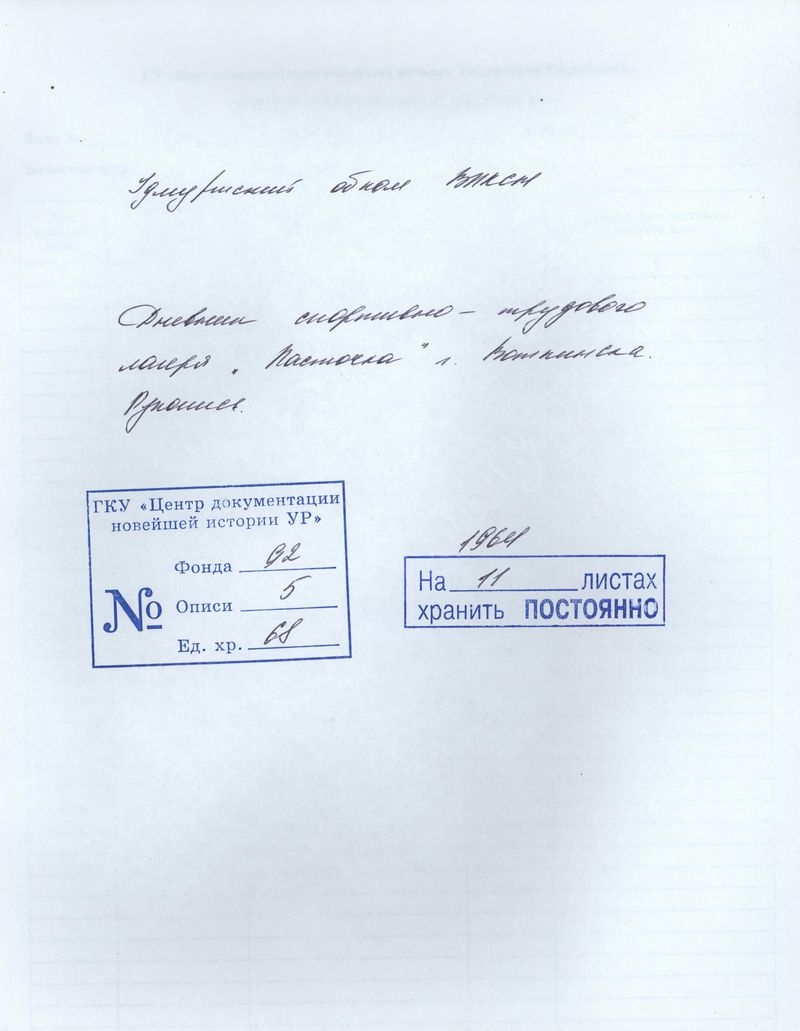 Удмуртский обком ВЛКСМ
Дневник спортивно-трудового
лагеря „Ласточка" г. Воткинска.
Рукопись.
ГКУ «Центр документации
новейшей истории УР»
Фонда 92
№ Описи 5
Ед. хр. 68
1964
На 11 листах
хранить ПОСТОЯННО